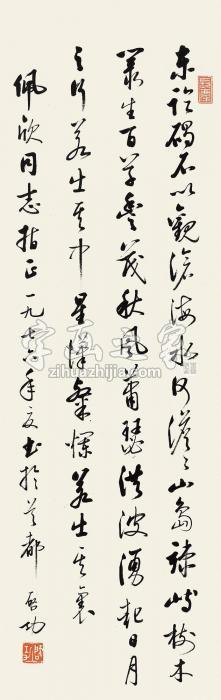 东临碣石以觀滄海水何澹〻山島竦峙樹木
叢生百草豐茂秋風蕭瑟洪波湧起日月
之行若出其中星漢粲爛若出其裏
佩欣同志指正一九七六年夏书於首都 啓功
字画之家
zihuazhijia.com